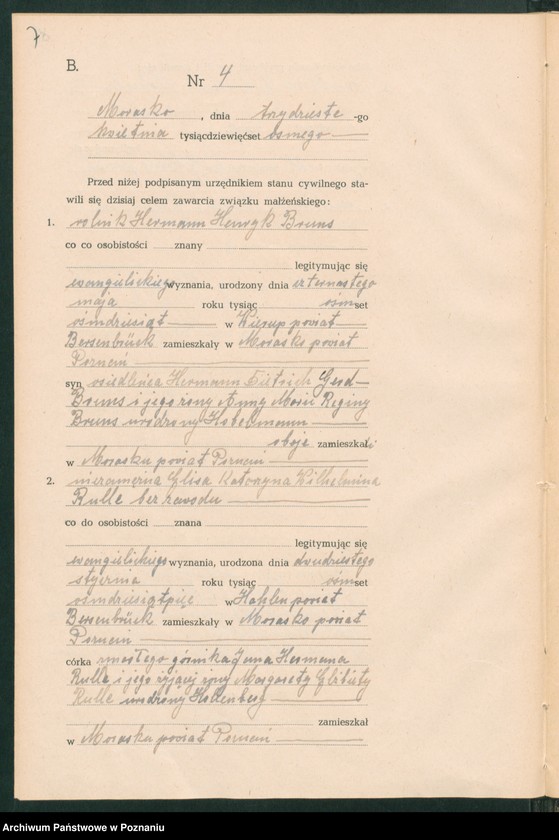 7
B.
Nr 4
Morasko, dnia trzydzieste -go
kwietnia tysiącdziewięćset ósmego
Przed niżej podpisanym urzędnikiem stanu cywilnego sta-
wili się dzisiaj celem zawarcia związku małżeńskiego:
1. rolnik Hermann Henryk Bruns
co co osobistości znany
legitymując się
ewangielickiego wyznania, urodzony dnia czternastego
maja roku tysiąc ośmset
ośmdziesiąt w powiat
Bersenbrück zamieszkały w Morasko powiat
Poznań
syn osiedleńca Hermann Dietrich Gerd
Bruns i jego żony Anny Marii Reginy
Bruns urodzony
oboje zamieszkali
w Morasku powiat Poznań
2. niezamężna Elisa Katarzyna Wilhelmina
Rulle bez zawodu
co do osobistości znana
legitymując się
ewangielickiego wyznania, urodzona dnia dwudziestego
stycznia roku tysiąc ośmset
ośmdziesiątpięć w powiat
Bersenbrück zamieszkały w Morasko powiat
Poznań
córka zmarłego górnika Jana Hermana
Rulle i jego żyjącej żony Margarety Elżbiety
Rulle urodzony
zamieszkał
w Morasku powiat Poznań
Archiwum Państwowe w Poznaniu